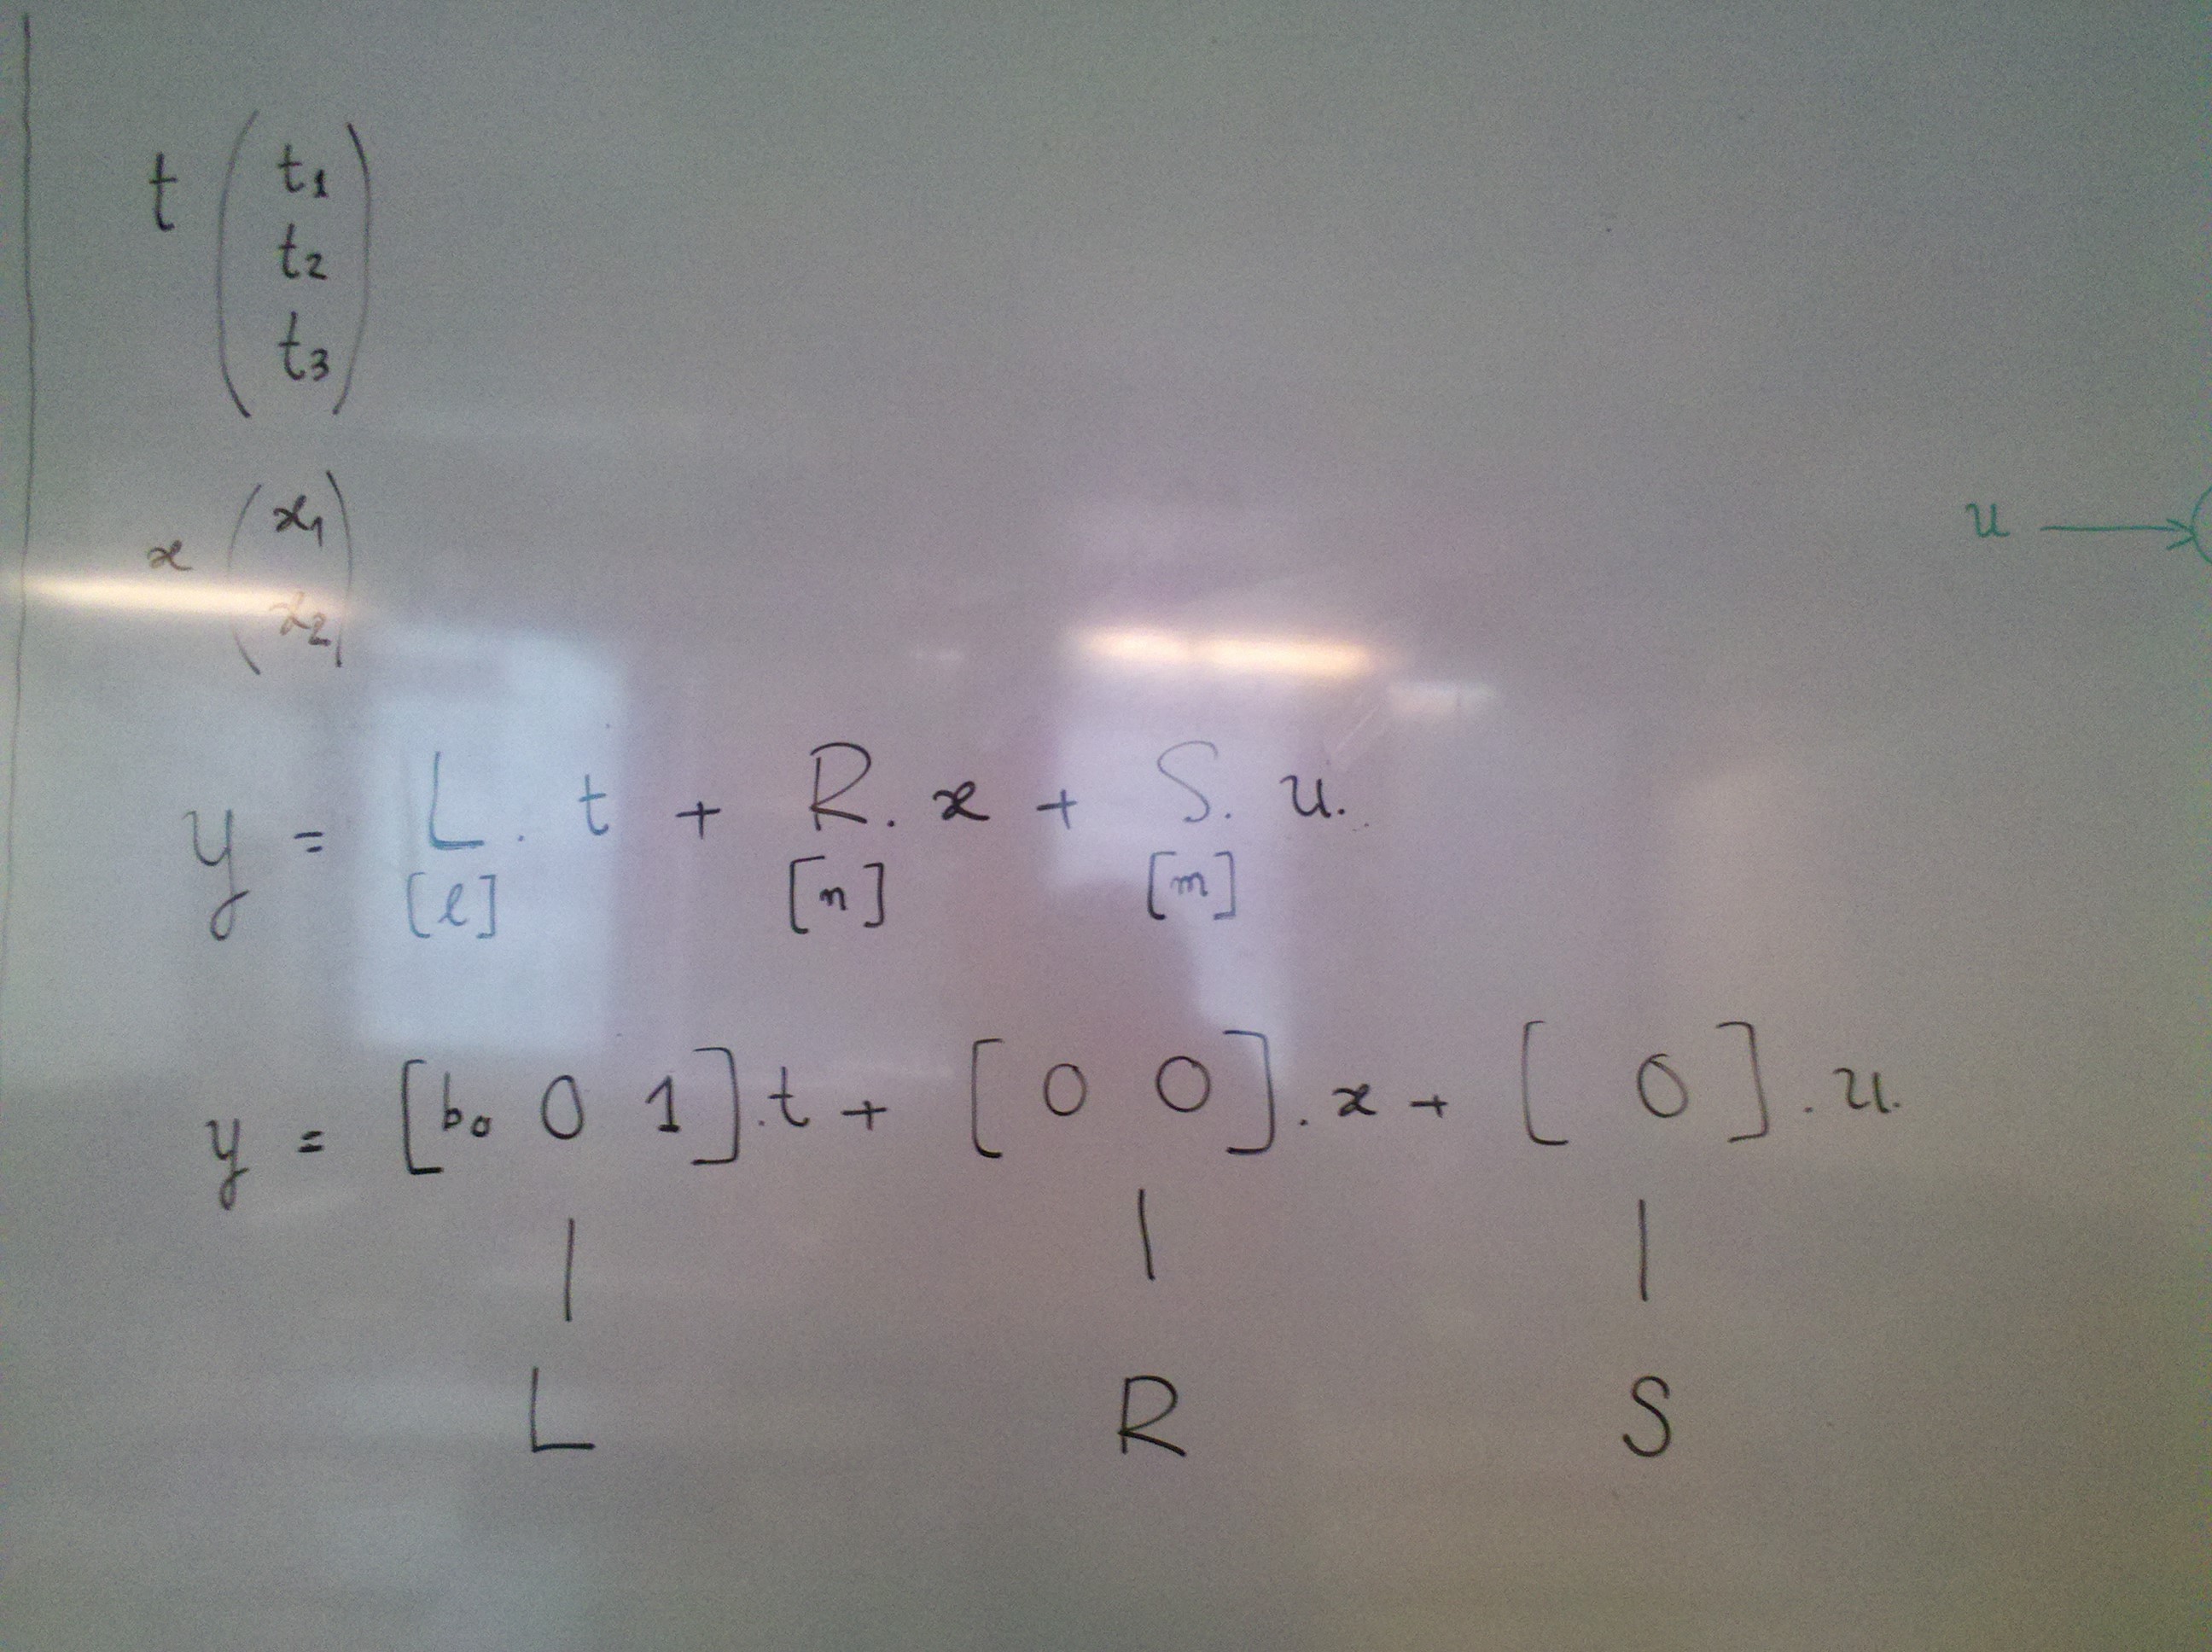 t ( t1
t2
t3 )
x ( x1
x2 )
u →
y = L . t + R . x + S . u.
[l] [n] [m]
y = [b0 0 1] . t + [0 0] . x + [0] . u.
| | |
L R S